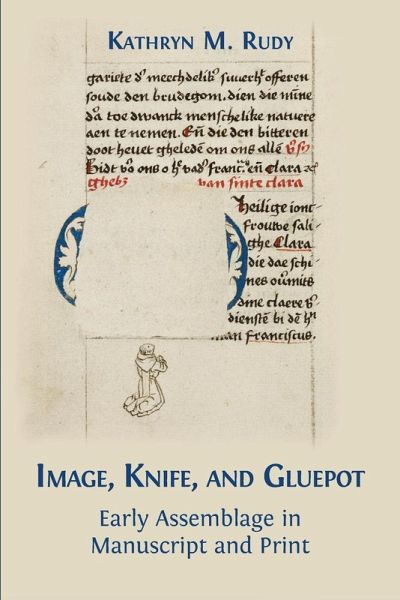 KATHRYN M. RUDY
gariete d' meechdelik' suuerh' offeren
soude den brudegom. dien die mīne
dɑ̄ toe dwanck menschelike natuere
aen te nemen. En̄ die den bitteren
doot heuet gheledē om ons alle
Bidt vō ons o h' vad' franc' en̄ Clara
gheb' van sinte clara
Heilige ionc
frouwe sali
ghe Clara
die dae schi
nes oūmits
dine claere
dienste bi dē h'
man franciscus.
IMAGE, KNIFE, AND GLUEPOT
Early Assemblage in
Manuscript and Print